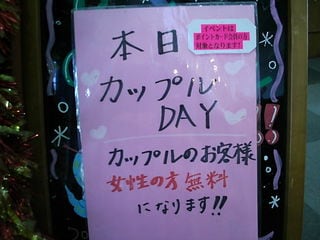 本日
イベントは
ポイントカード会員の方
対象となります!
カップル
DAY
カップルのお客様
女性の方 無料
になります!!